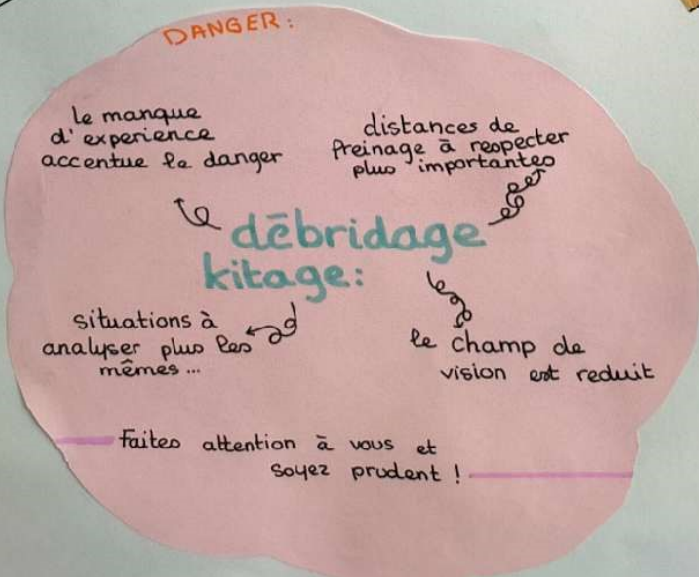 DANGER :
le manque
d' experience
accentue le danger
distances de
freinage à respecter
plus importantes
débridage
kitage :
situations à
analyser plus les
mêmes ...
le champ de
vision est reduit
Faites attention à vous et
soyez prudent !